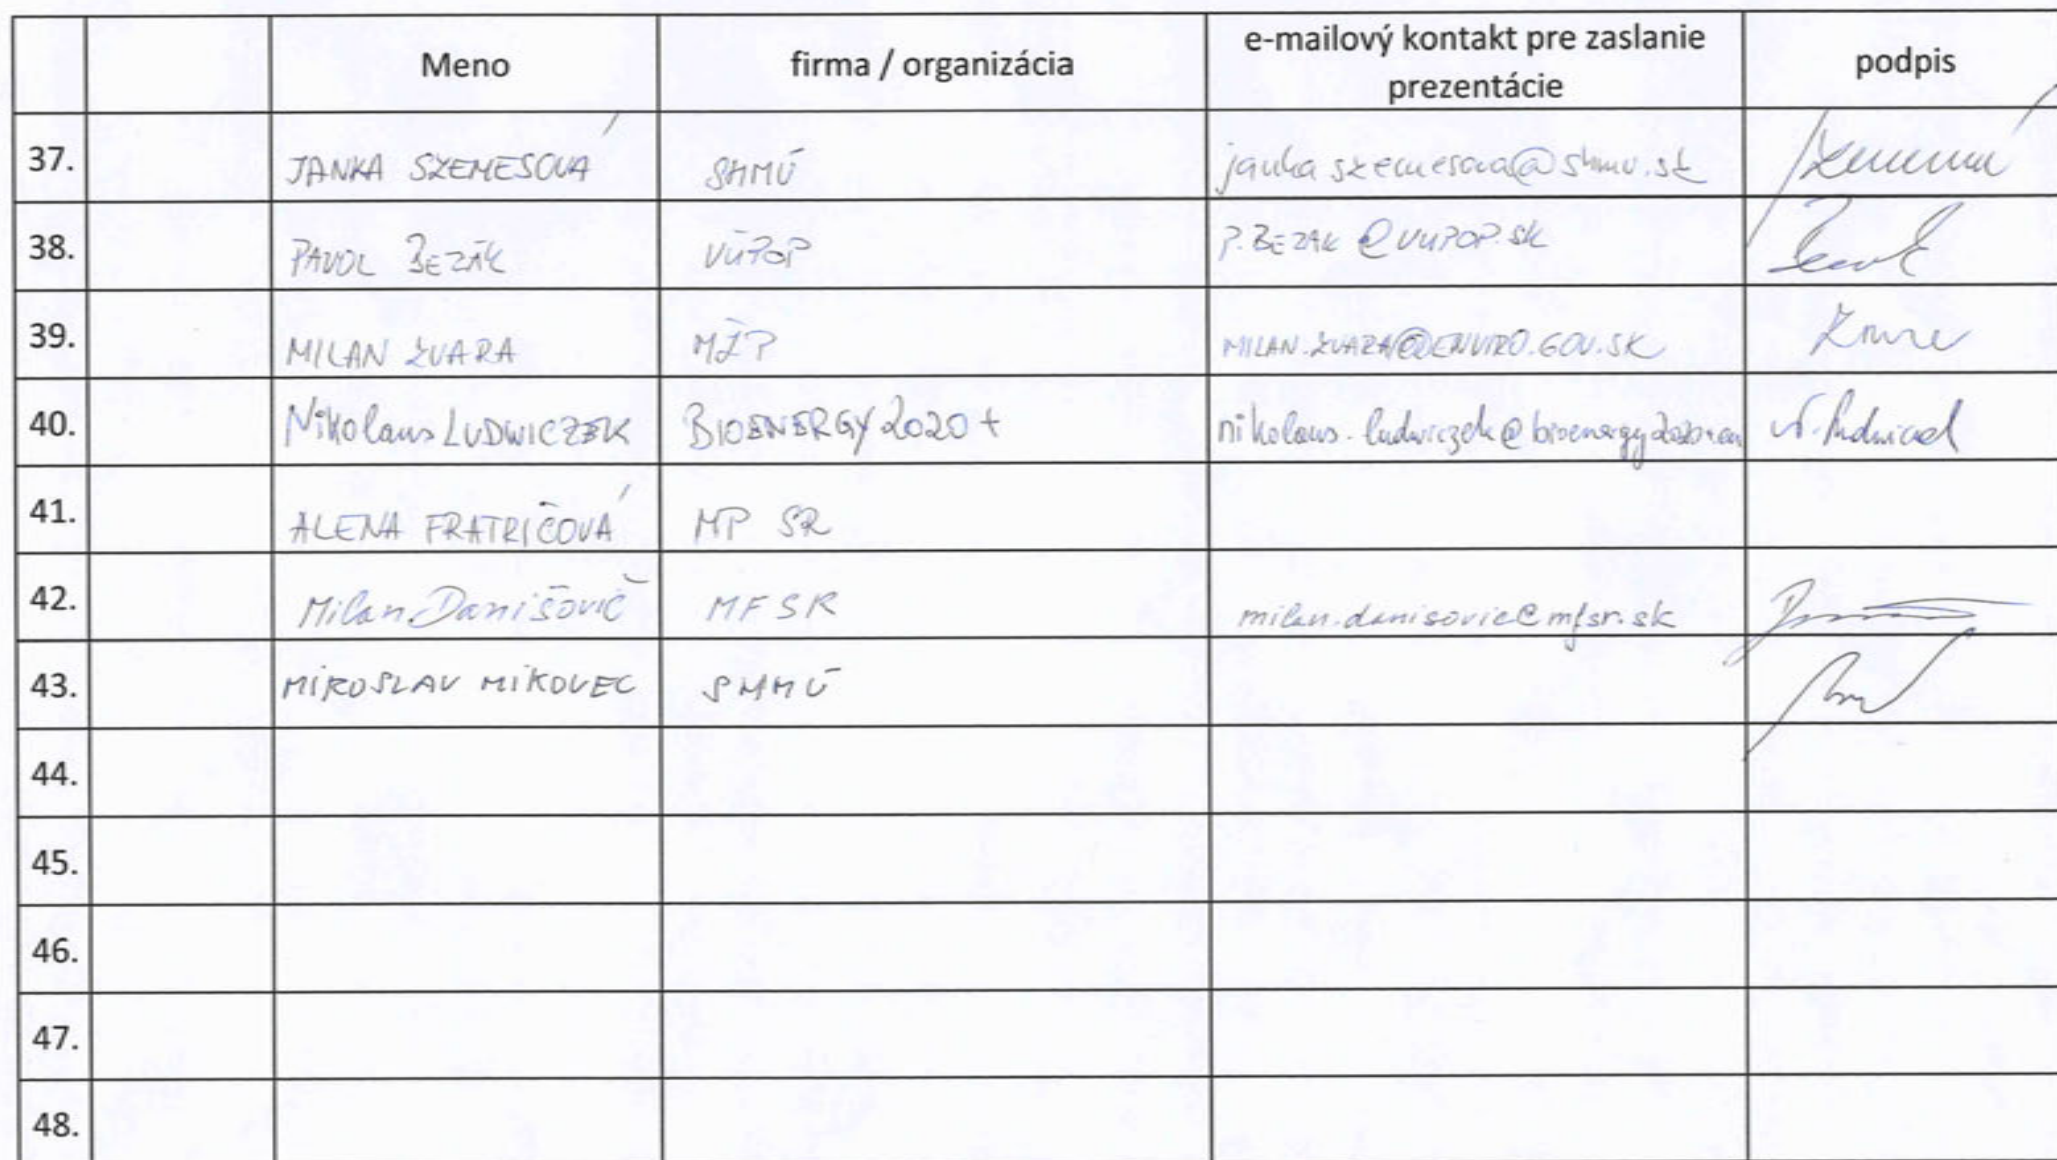 Meno firma / organizácia e-mailový kontakt pre zaslanie prezentácie podpis
37. JANKA SZEMESOVÁ SHMÚ janka.szemesova@shmu.sk
38. PAVOL BEZÁK VÚPOP P.BEZAK@VUPOP.SK
39. MILAN ZVARA MŽP MILAN.ZVARA@ENVIRO.GOV.SK
40. Nikolaus LUDWICZEK BIOENERGY2020+ nikolaus.ludwiczek@bioenergy2020.eu
41. ALENA FRATRIČOVÁ MP SR
42. Milan Danišovič MFSR milan.danisovic@mfsr.sk
43. MIROSLAV MIKOVEC SHMÚ
44.
45.
46.
47.
48.